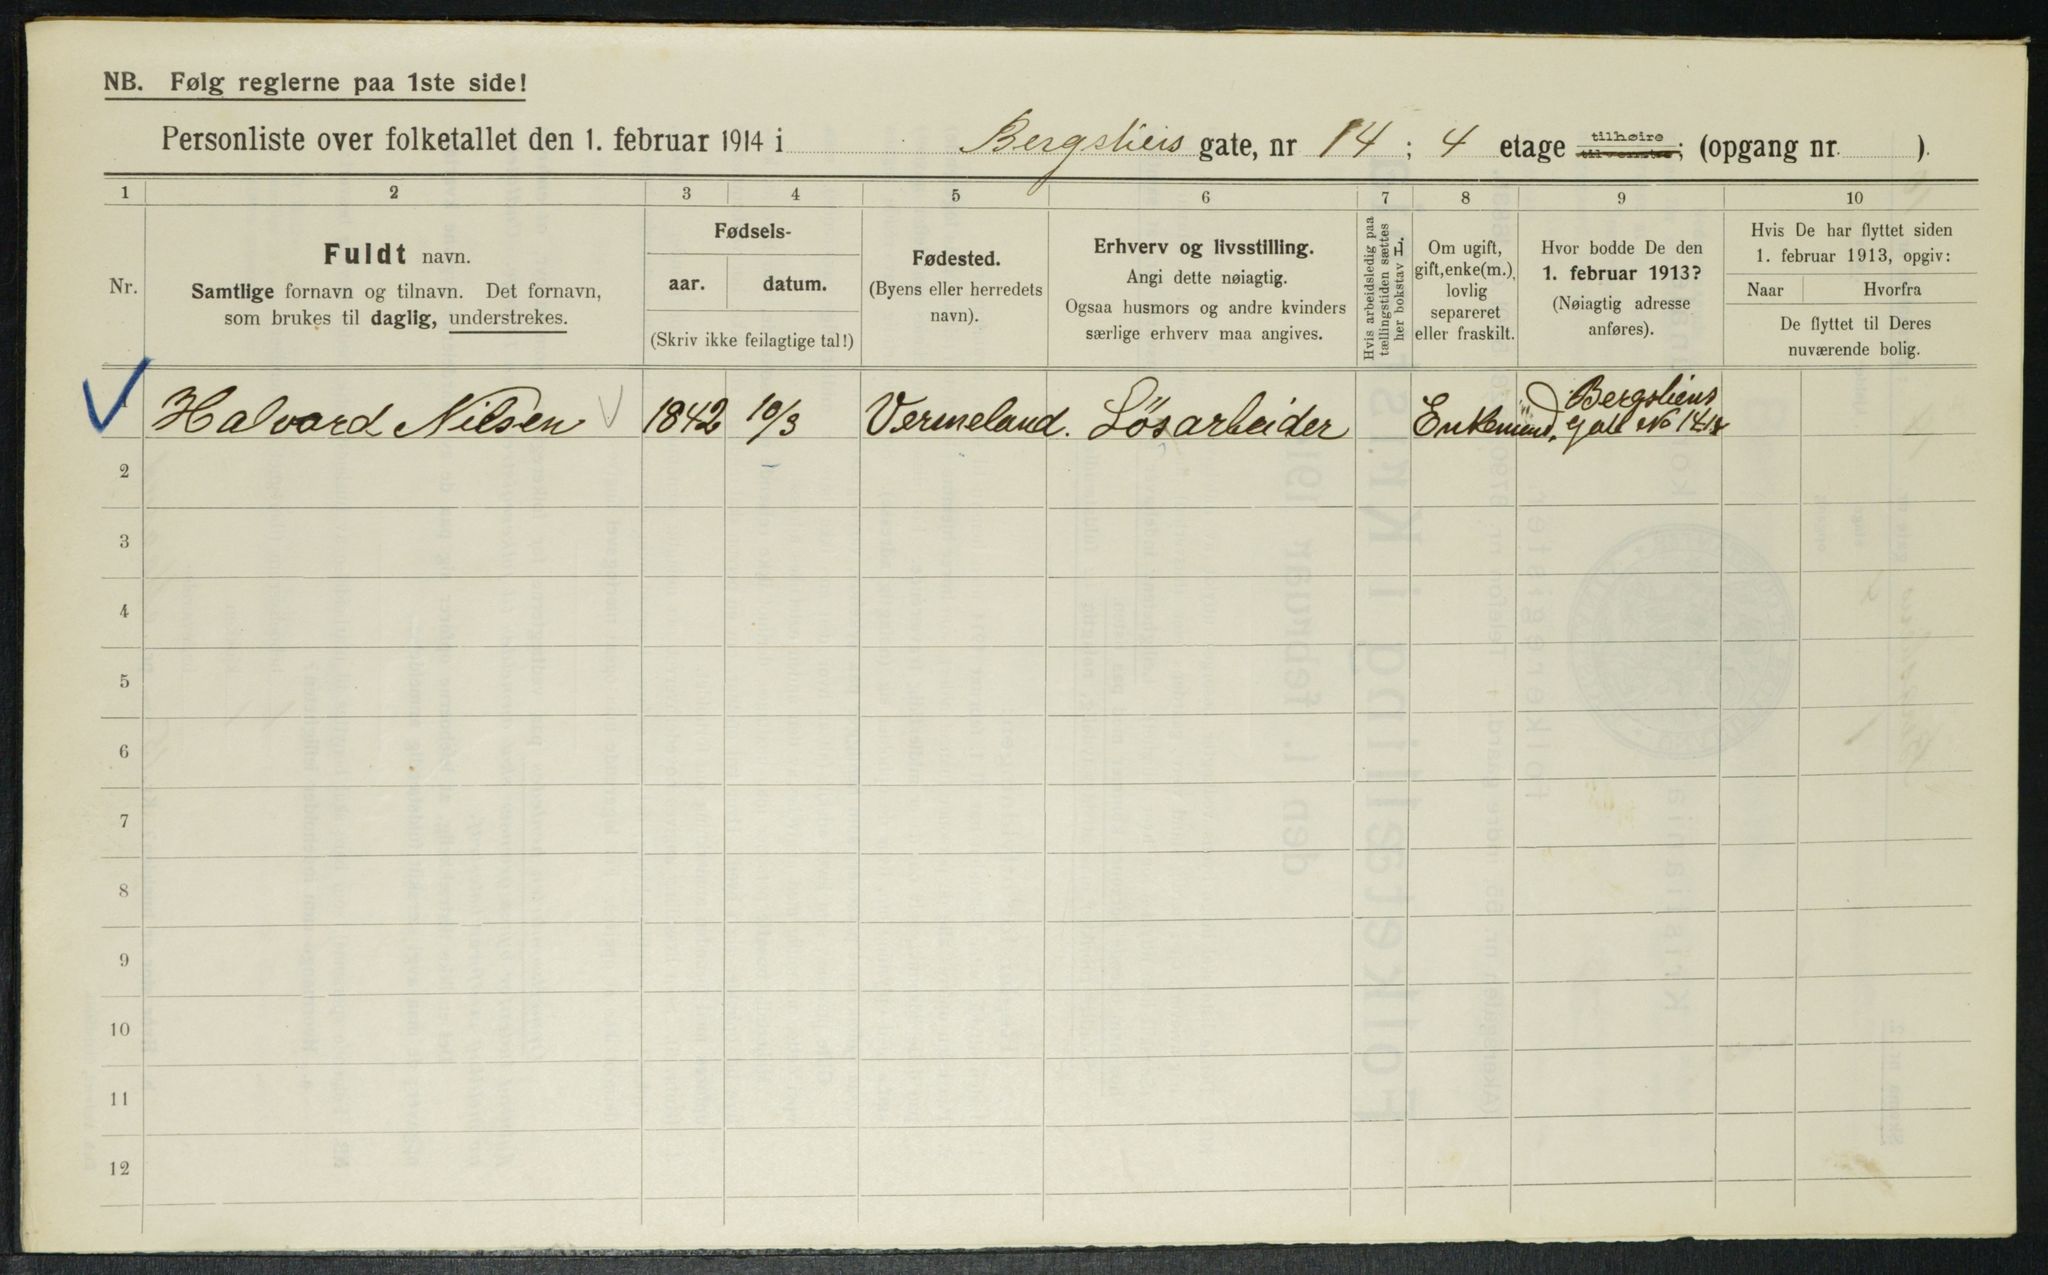 NB. Følg reglerne paa 1ste side!
Personliste over folketallet den 1. februar 1914 i Bergsliens gate, nr 14 ; 4 etage tilhøire tilvenstre; (opgang nr. ).
1 2 3 4 5 6 7 8 9 10
Nr.
Fuldt navn.
Samtlige fornavn og tilnavn. Det fornavn,
som brukes til daglig, understrekes.
Fødsels-
aar. datum.
(Skriv ikke feilagtige tal!)
Fødested.
(Byens eller herredets
navn).
Erhverv og livsstilling.
Angi dette nøiagtig.
Ogsaa husmors og andre kvinders
særlige erhverv maa angives.
Hvis arbeidsledig paa
tællingstiden sættes
her bokstav H.
Om ugift,
gift,enke(m.),
lovlig
separeret
eller fraskilt.
Hvor bodde De den
1. februar 1913?
(Nøiagtig adresse
anføres).
Hvis De har flyttet siden
1. februar 1913, opgiv:
Naar Hvorfra
De flyttet til Deres
nuværende bolig.
1 Halvard Nilsen 1842 10/3 Vermeland. Lösarbeider Enkemand. Bergsliens
Gate No 14
2
3
4
5
6
7
8
9
10
11
12